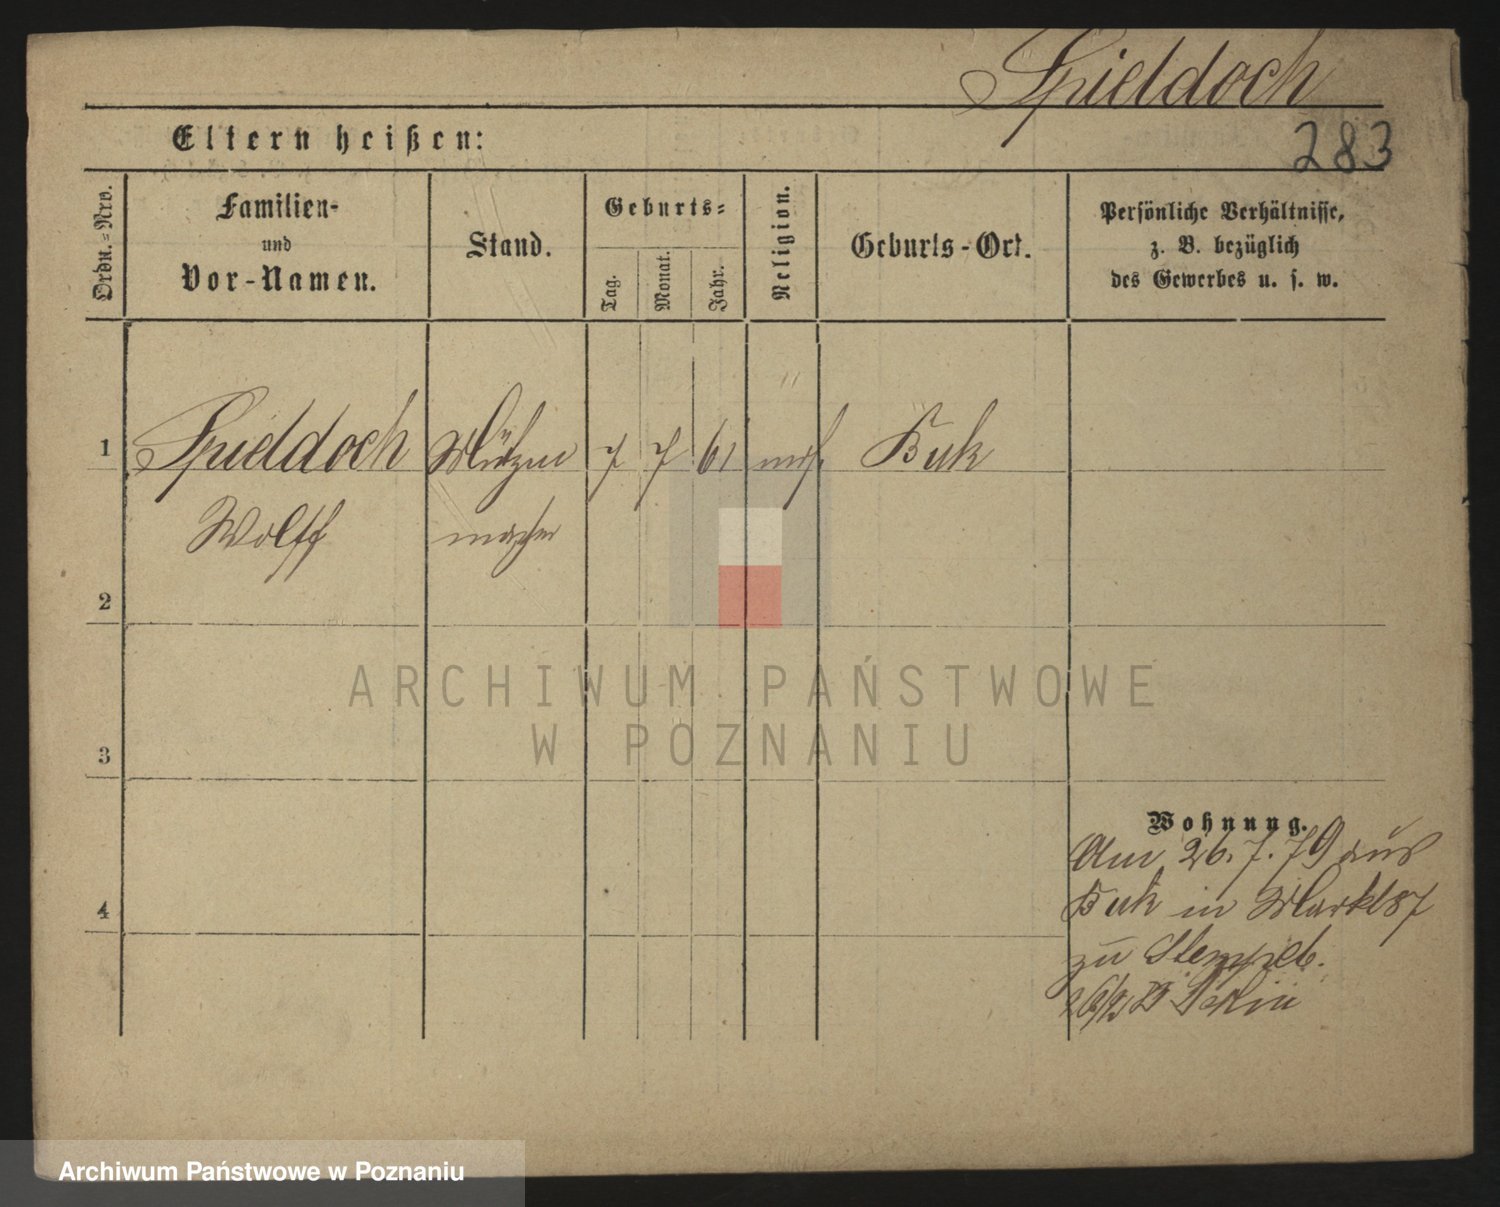 Spieldoch
Eltern heißen:
283
Ordn.=Nro.
Familien-
und
Vor-Namen.
Stand.
Geburts=
Tag.
Monat.
Jahr.
Religion.
Geburts-Ort.
Persönliche Verhältnisse,
z. B. bezüglich
des Gewerbes u. s. w.
1 Spieldoch Mützen 7 7 61 mos. Buk
Wolff macher
2
3
4
Wohnung.
Am 26. 7. 79 aus
Buk in Markt 87
zu
ARCHIWUM PAŃSTWOWE
W POZNANIU
Archiwum Państwowe w Poznaniu